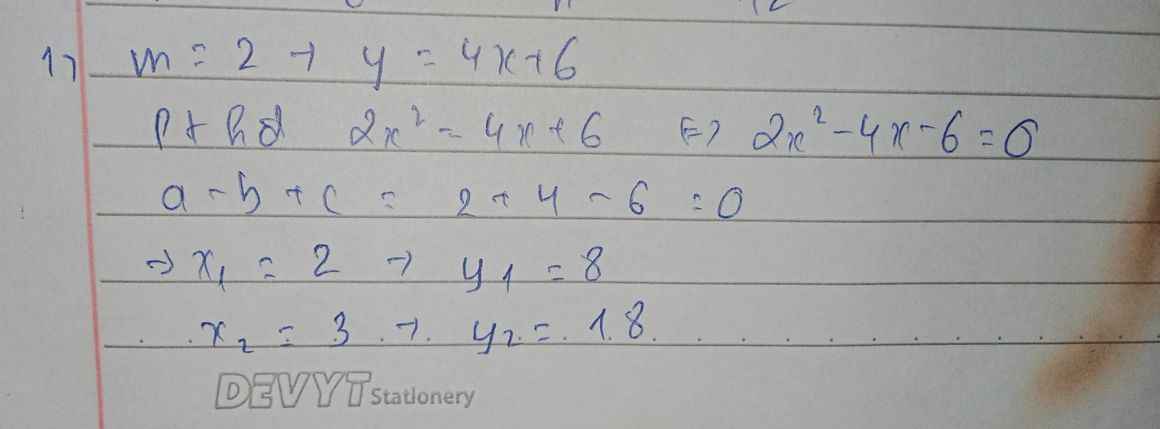 1) m = 2 → y = 4x + 6
pt hđ 2x² = 4x + 6 <=> 2x² - 4x - 6 = 0
a - b + c = 2 + 4 - 6 = 0
=> x₁ = 2 → y₁ = 8
x₂ = 3 → y₂ = 18
DEVYT Stationery